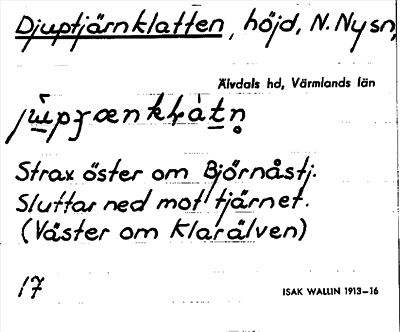 Djuptjärnklatten, höjd, N. Nysn,
Älvdals hd, Värmlands län
Strax öster om Björnåstj.
Sluttar ned mot tjärnet.
(Väster om Klarälven)
17
ISAK WALLIN 1913-16